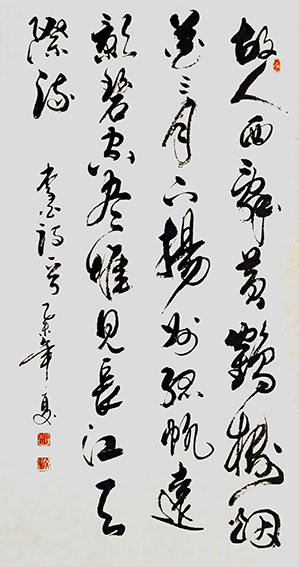 故人西辭黃鶴樓烟
花三月下揚州孤帆遠
影碧空盡惟見長江天
際流
李白詩一首乙未年夏